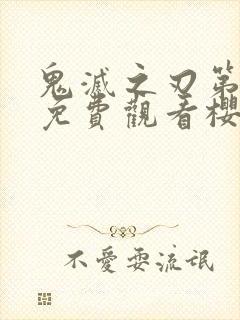 鬼滅之刃第
免費觀看櫻
不愛耍流氓